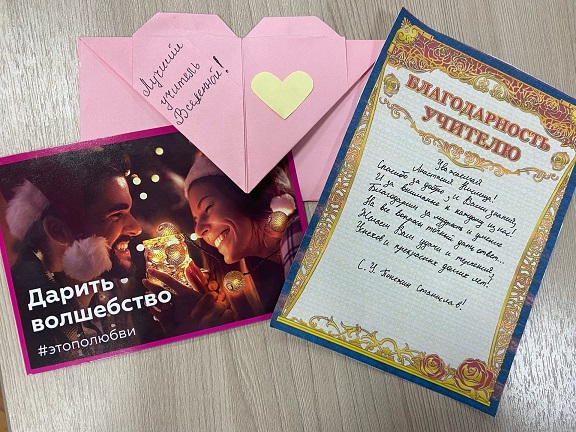 Лучший
учитель
Вселенной!
Дарить
волшебство
#этополюбви
БЛАГОДАРНОСТЬ
УЧИТЕЛЮ
Уважаемая
Анастасия
Спасибо за заботу, и Ваши знания,
И за внимание к каждому из нас!
Благодарим за мудрость и умение
На все вопросы точно дать ответ...
Желаем Вам удачи и терпения,
Успехов и прекрасных долгих лет!
С. У. Станислав!